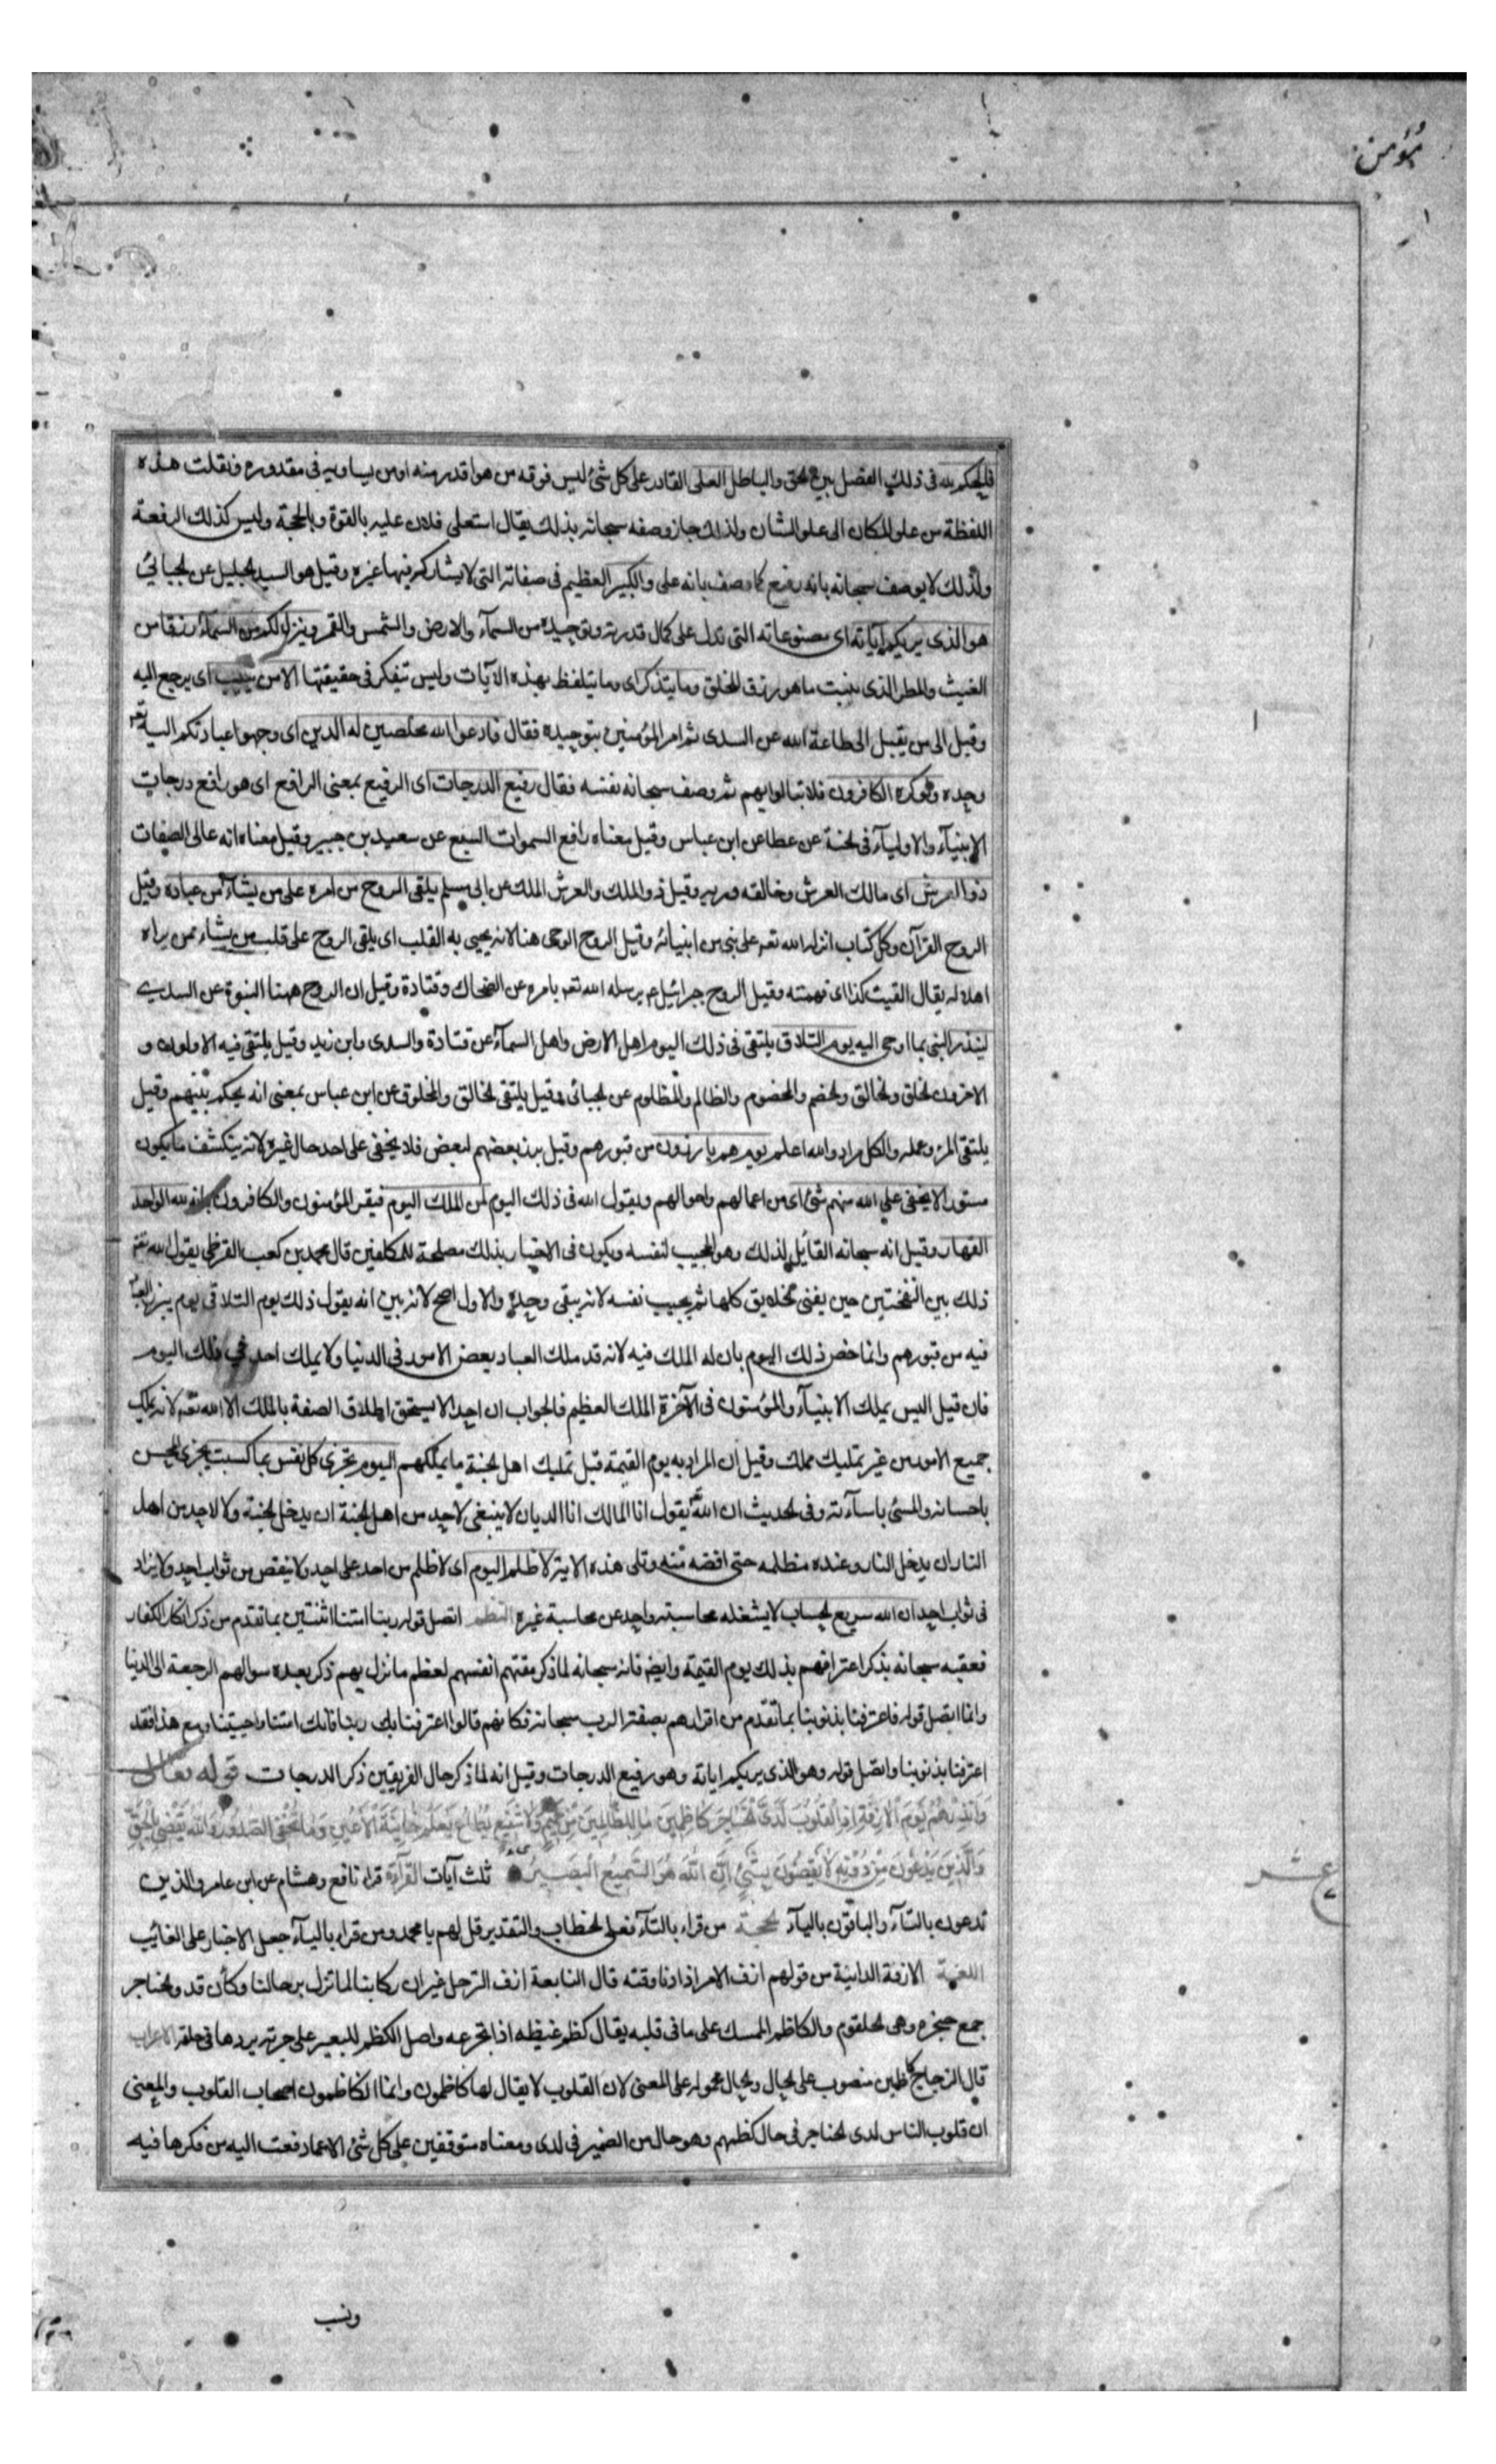 مؤمن
فالحكم لله فى ذلك الفصل بين الحق والباطل العلى القادر على كل شئ ليس فوقه من هو اقدر منه او من يساويه فى مقدوره ونقلت هذه
اللفظة من علو المكان الى علو الشان ولذلك جاز وصفه سبحانه بذلك يقال استعلى فلان عليه بالقوة وبالحجة وليس كذلك الرفعة
ولذلك لا يوصف سبحانه بانه رفيع كما وصف بانه على والكبير العظيم فى صفاته التى لا يشاركه فيها غيره وقيل هو السيد الجليل عن الجبائى
هو الذى يريكم اياته اى مصنوعاته التى تدل على كمال قدرته وتوحيده من السمآء والارض والشمس والقمر وينزل لكم من السمآء رزقا من
الغيث والمطر الذى ينبت ما هو رزق الخلق وما يتذكر اى وما يتلفظ بهذه الآيات وليس تتفكر فى حقيقتها الا من ينيب اى يرجع اليه
وقيل الى من يقبل الى طاعة الله عن السدى ثم امر المؤمنين بتوحيده فقال فادعوا الله مخلصين له الدين اى وجهوا عبادتكم اليه تعم
وحده ولو كره الكافرون فلا تبالوا بهم ثم وصف سبحانه نفسه فقال رفيع الدرجات اى الرفيع بمعنى الرافع اى هو رافع درجات
الانبيآء والاوليآء فى الجنة عن عطا عن ابن عباس وقيل معناه رافع السموات السبع عن سعيد بن جبير وقيل معناه انه عالى الصفات
ذو العرش اى مالك العرش وخالقه وربه وقيل ذو الملك والعرش الملك عن ابى مسلم يلقى الروح من امره على من يشآء من عباده وقيل
الروح القرآن وكل كتاب انزله الله تعم على نبى من انبيائه وقيل الروح الوحى هنا لانه يحيى به القلب اى يلقى الروح على قلب من يشاء ممن يراه
اهلا له يقال القيت كذا اى فهمته وقيل الروح جبرائيل ع يرسله الله تعم بامره عن الضحاك وقتادة وقيل ان الروح ههنا النبوة عن السدى
لينذر النبى بما اوحى اليه يوم التلاق يلتقى فى ذلك اليوم اهل الارض واهل السمآء عن قتادة والسدى وابن زيد وقيل يلتقى فيه الاولون و
الاخرون الخلق والخالق والخصم والمخصوم والظالم والمظلوم عن الجبائى وقيل يلتقى الخالق والمخلوق عن ابن عباس بمعنى انه يحكم بينهم وقيل
يلتقى المرؤ وعمله والكل مراد والله اعلم يوم هم بارزون من قبورهم وقيل برز بعضهم لبعض فلا يخفى على احد حال غيره لانه ينكشف ما يكون
مستورا لا يخفى على الله منهم شئ اى من اعمالهم واحوالهم ويقول الله فى ذلك اليوم لمن الملك اليوم فيقر المؤمنون والكافرون بانه لله الواحد
القهار وقيل انه سبحانه القائل لذلك وهو المجيب لنفسه ويكون فى الاخبار بذلك مصلحة للمكلفين قال محمد بن كعب القرظى يقول الله تعم
ذلك بين النفختين حين يفنى الخلايق كلها ثم يجيب نفسه لانه يبقى وحده والاول اصح لانه بين انه يقول ذلك يوم التلاق يوم يبرز العباد
فيه من قبورهم وانما خص ذلك اليوم بان له الملك فيه لانه قد ملك العباد بعض الامور فى الدنيا ولا يملك احد فى ذلك اليوم
فان قيل اليس يملك الانبيآء والمؤمنون فى الآخرة الملك العظيم فالجواب ان احدا لا يستحق اطلاق الصفة بالملك الا الله تعم لانه يملك
جميع الامور من غير تمليك مملك وقيل ان المراد به يوم القيمة قبل تمليك اهل الجنة ما يملكهم اليوم تجزى كل نفس بما كسبت يجزى المحسن
باحسانه والمسئ باسآءته وفى الحديث ان الله تعم يقول انا المالك انا الديان لا ينبغى لاحد من اهل الجنة ان يدخل الجنة ولا لاحد من اهل
النار ان يدخل النار وعنده مظلمه حتى اقضه منه وتلى هذه الاية لا ظلم اليوم اى لا ظلم من احد على احد ولا ينقص من ثواب احد ولا يزاد
فى ثواب احد ان الله سريع الحساب لا يشغله محاسبة واحد عن محاسبة غيره النظم اتصل قوله ربنا امتنا اثنتين بما تقدم من ذكر انكار الكفار
فعقبه سبحانه بذكر اعترافهم بذلك يوم القيمة وايضا فانه سبحانه لما ذكر مقتهم انفسهم لعظم ما نزل بهم ذكر بعده سوالهم الرجعة الى الدنيا
وانما اتصل قوله فاعترفنا بذنوبنا بما تقدم من اقرارهم بصفة الرب سبحانه فكانهم قالوا اعترفنا بك ربنا فانك امتنا واحييتنا ومع هذا فقد
اعترفنا بذنوبنا واتصل قوله وهو الذى يريكم اياته وهو رفيع الدرجات وقيل انه لما ذكر حال الفريقين ذكر الدرجات قوله تعالى
وَأَنْذِرْهُمْ يَوْمَ الْآزِفَةِ إِذِ الْقُلُوبُ لَدَى الْحَنَاجِرِ كَاظِمِينَ مَا لِلظَّالِمِينَ مِنْ حَمِيمٍ وَلَا شَفِيعٍ يُطَاعُ يَعْلَمُ خَائِنَةَ الْأَعْيُنِ وَمَا تُخْفِى الصُّدُورُ وَاللَّهُ يَقْضِى بِالْحَقِّ
وَالَّذِينَ يَدْعُونَ مِنْ دُونِهِ لَا يَقْضُونَ بِشَيْءٍ إِنَّ اللَّهَ هُوَ السَّمِيعُ الْبَصِيرُ ثلث آيات القرآءة قرا نافع وهشام عن ابن عامر والذين
عشر
تدعون بالتآء والباقون باليآء الحجة من قراء بالتآء فعلى الخطاب والتقدير قل لهم يا محمد ومن قراء باليآء جعل الاخبار على الغائب
اللغة الازفة الدانية من قولهم ازف الامر اذا دنا وقته قال النابعة ازف الترحل غير ان ركابنا لما تزل برحالنا وكأن قد والحناجر
جمع حنجرة وهى الحلقوم والكاظم الممسك على ما فى قلبه يقال كظم غيظه اذا تجرعه واصل الكظم للبعير على جرته يردها فى حلقه الاعراب
قال الزجاج كاظمين منصوب على الحال والحال محمولة على المعنى لان القلوب لا يقال لها كاظمون وانما الكاظمون اصحاب القلوب والمعنى
ان قلوب الناس لدى الحناجر فى حال كظمهم وهو حال من الضمير فى لدى ومعناه متوقفين على كل شئ الا عما دفعت اليه من فكرها فيه
ونسب